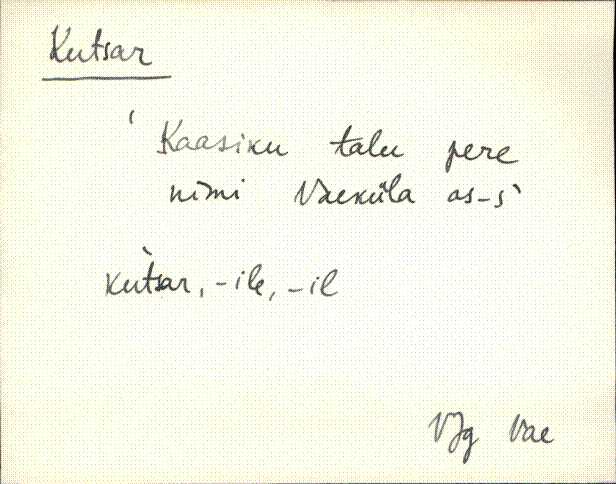 Kutsar
' Kaasiku talu pere
nimi Vaeküla as-s'
kut̀sar, -ile, -il
VJg Vae